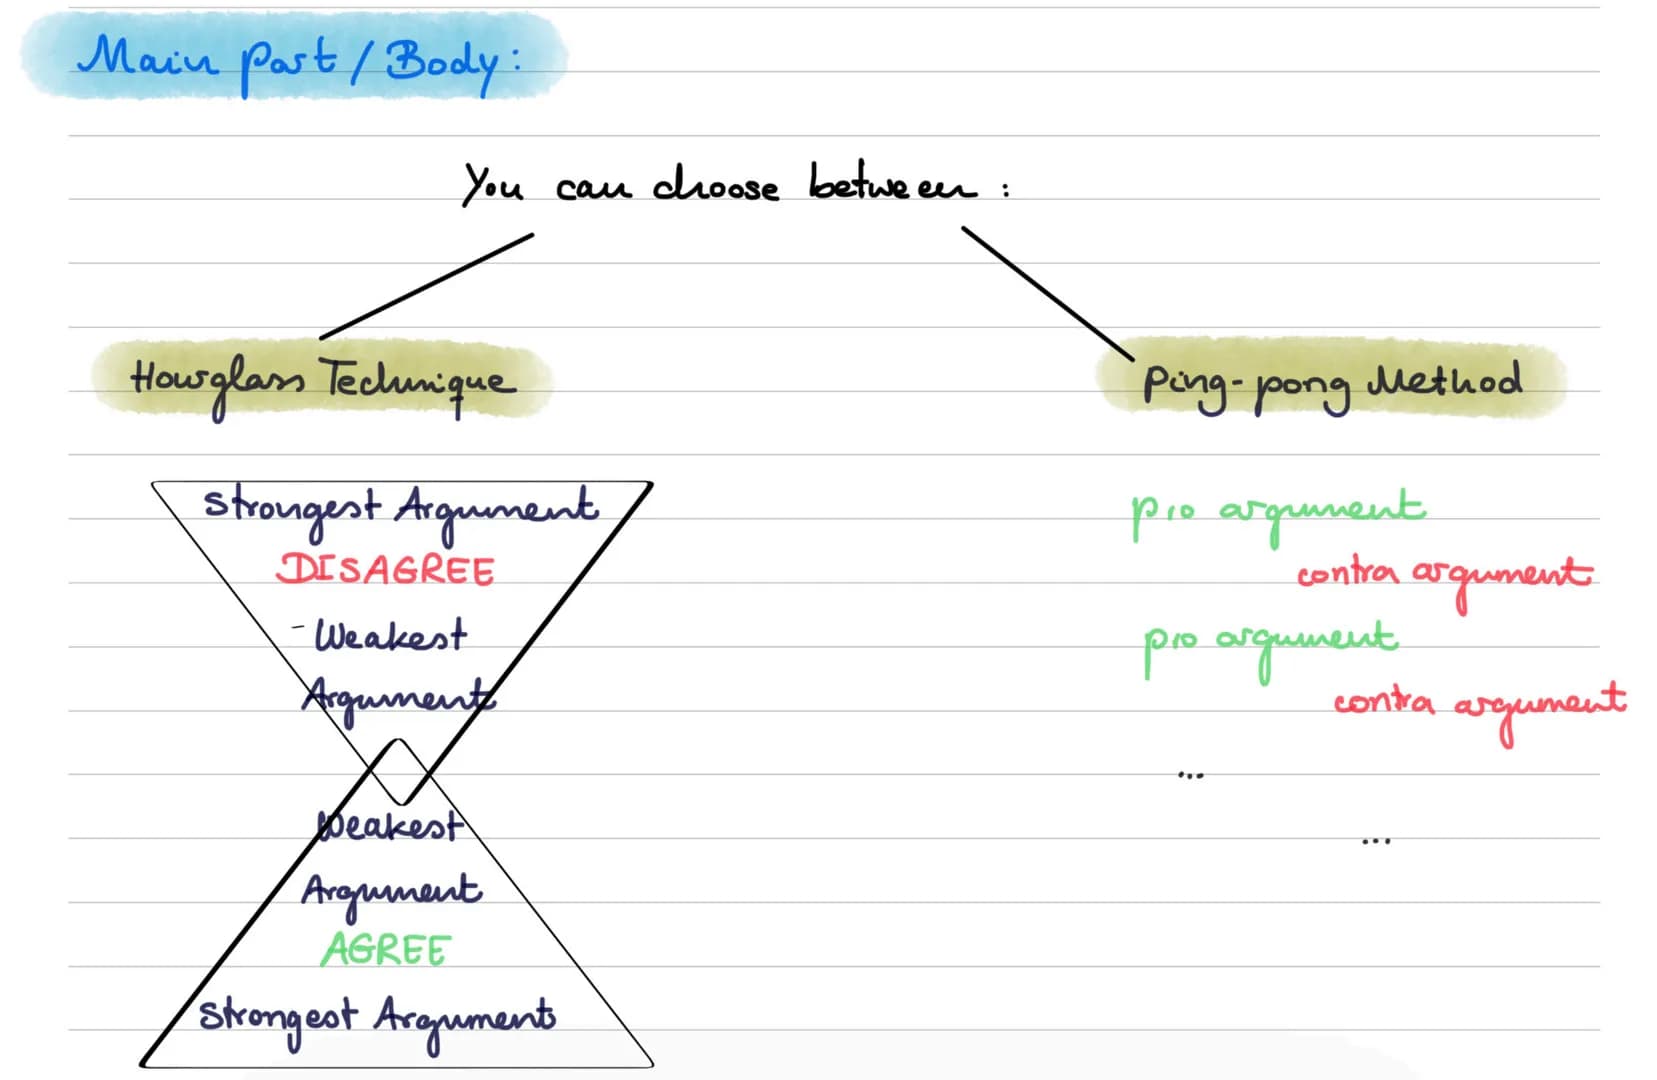 Main part / Body:
You can choose between :
Hourglass Technique
Strongest Argument
DISAGREE
- Weakest
Argument
Weakest
Argument
AGREE
Strongest Argument
Ping-pong Method
pro argument
contra argument
pro argument
contra argument
...
...